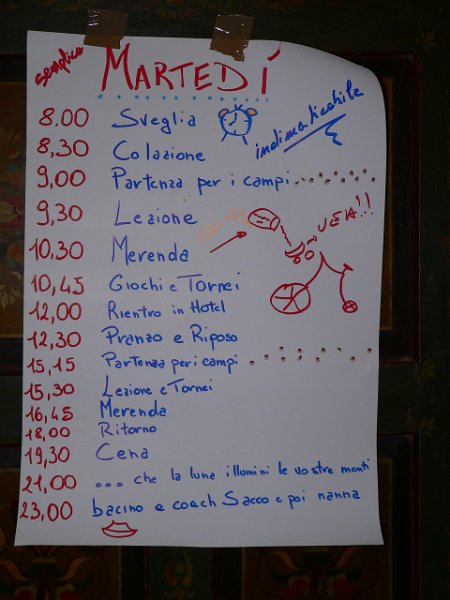 semplice
MARTEDÍ
indimenticabile
8.00 Sveglia
8,30 Colazione
9,00 Partenza per i campi
9,30 Lezione
UEIA!!
10,30 Merenda
10,45 Giochi e Tornei
12,00 Rientro in Hotel
12,30 Pranzo e Riposo
15,15 Partenza per i campi
15,30 Lezione e Tornei
16,45 Merenda
18,00 Ritorno
19,30 Cena
21,00 ... che la luna illumini le vostre menti
23,00 bacino a coach Sacco e poi nanna